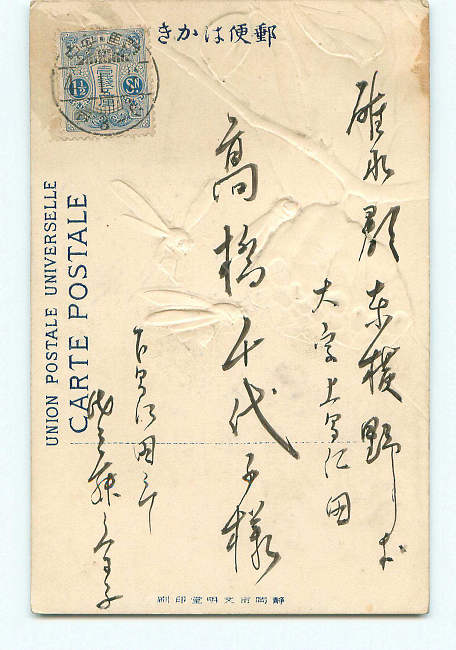 郵便はかき
1½ SN
碓氷郡東横野村
大字上間仁田
高橋千代子様
下間仁田
UNION POSTALE UNIVERSELLE
CARTE POSTALE
静岡市文明堂印刷